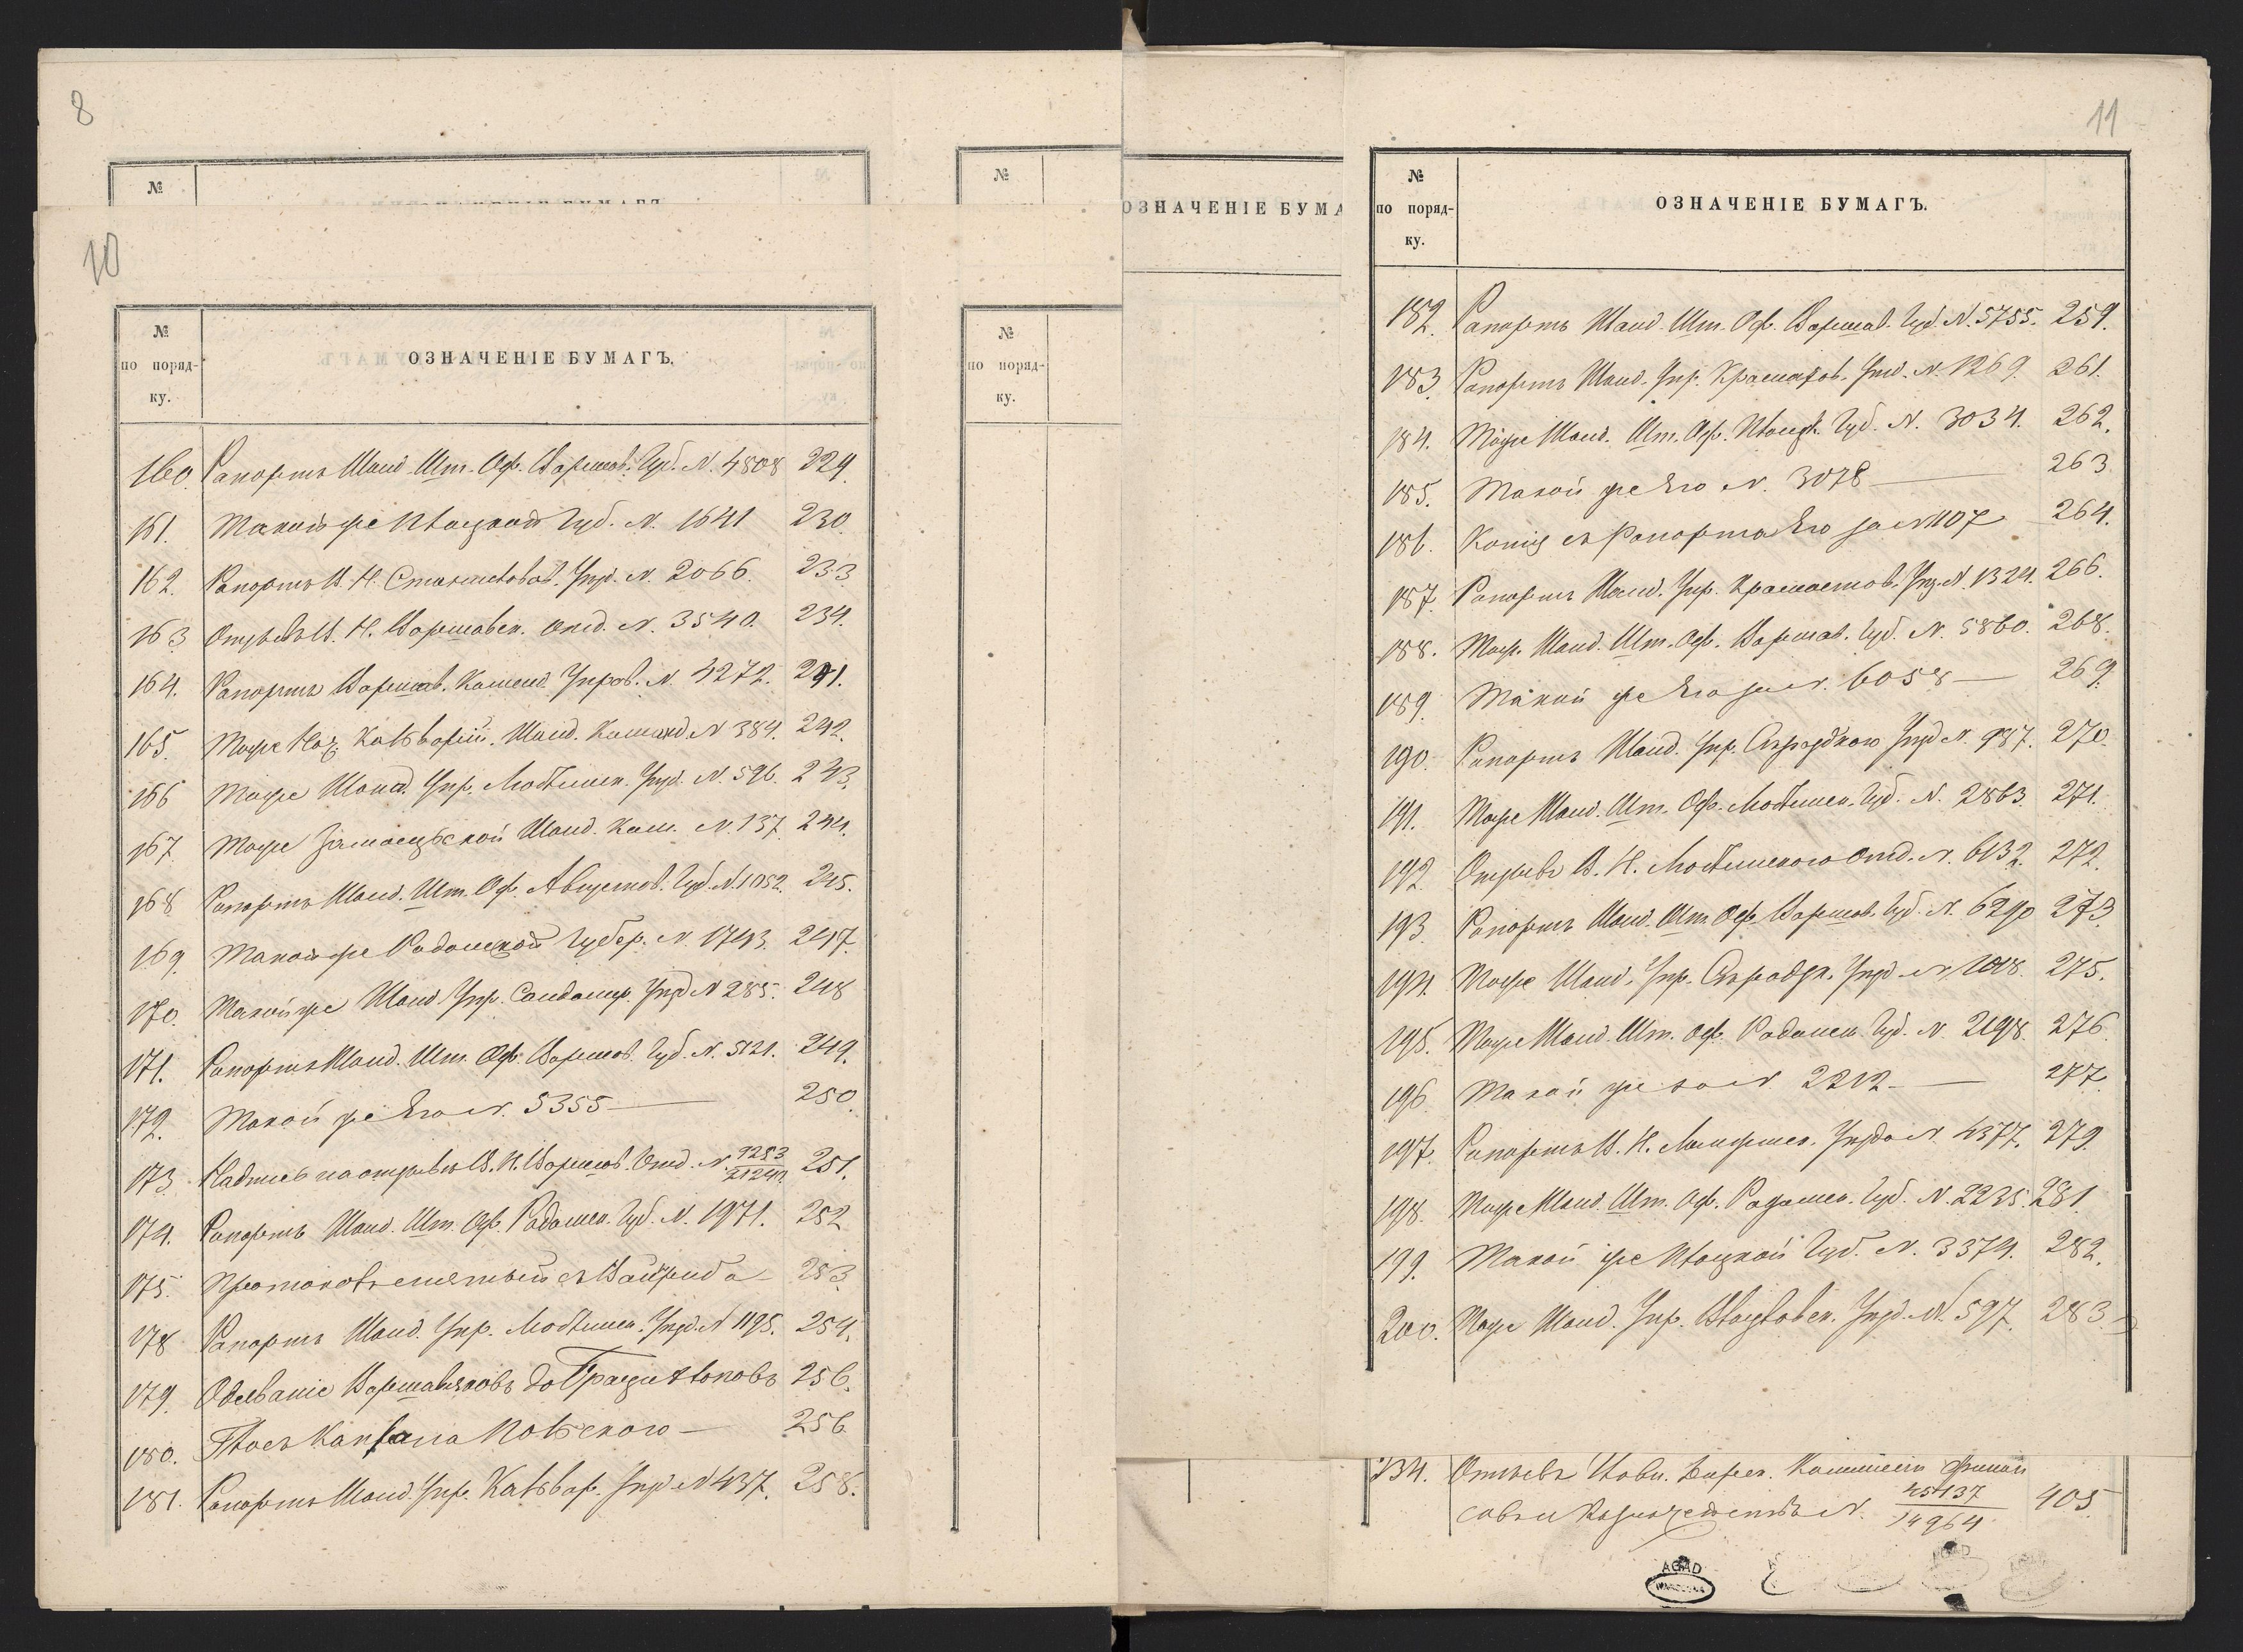 8
№
10
№
по поряд-
ку.
ОЗНАЧЕНІЕ БУМАГЪ.
160. Рапортъ Жанд. Шт. Оф. Варшав. Губ. N. 4808 229.
161. Такой же Плоцкой Губ. N. 1641 230.
162. Рапортъ В. Н. Станиславов. Уѣзд. N. 2066. 233.
163 Отзывъ В. Н. Варшавск. Отд. N. 3540. 234.
164. Рапортъ Варшав. Коменд. Управ. N. 4272. 241.
165. Тоже Нач. Кальварій. Жанд. Команд. N 384. 242.
166 Тоже Жанд. Упр. Люблинск. Уѣзд. N. 596. 243.
167. Тоже Замосцьской Жанд. Ком. N. 137. 244.
168 Рапортъ Жанд. Шт. Оф. Августов. Губ. N. 1052. 245.
169. Такой же Радомской Губер. N. 1743. 247.
170. Такой же Жанд. Упр. Сандомир. Уѣзд. N 285. 248
171. Рапортъ Жанд. Шт. Оф. Варшав. Губ. N. 5121. 249.
172. Такой же Его N. 5355 — 250.
173. Надпись на отзывѣ В. Н. Варшав. Отд. N. 9253/21244 251.
174. Рапортъ Жанд. Шт. Оф. Радомск. Губ. N. 1971. 252
175. Протоколъ снятый съ 253.
178 Рапортъ Жанд. Упр. Люблинск. Уѣзд. N 1195. 254.
179. Варшавяковъ до 256.
180. Гласъ Капелана Польскаго — 256
181. Рапортъ Жанд. Упр. Кальвар. Уѣзд. N 437. 258.
№
№
по поряд-
ку.
ОЗНАЧЕНІЕ БУМА
11
№
по поряд-
ку.
ОЗНАЧЕНІЕ БУМАГЪ.
182. Рапортъ Жанд. Шт. Оф. Варшав. Губ. N. 5755. 259.
183. Рапортъ Жанд. Упр. Красностав. Уѣзд. N. 1269. 261.
184. Тоже Жанд. Шт. Оф. Плоцк. Губ. N. 3034. 262.
185. Такой же Его N. 3078 — 263
186. Копія съ Рапорта Его за N 1107 264.
187. Рапортъ Жанд. Упр. Красностав. Уѣз. N 1324. 266.
188. Тоже Жанд. Шт. Оф. Варшав. Губ. N. 5860. 268.
189. Такой же Его за N. 6058 — 269.
190. Рапортъ Жанд. Упр. Сѣрадзкого Уѣзд N. 987. 270.
191. Тоже Жанд. Шт. Оф. Люблинск. Губ. N. 2863. 271.
192. Отзывъ В. Н. Люблинскаго Отд. N. 6132. 272.
193. Рапортъ Жанд. Шт. Оф. Варшав. Губ. N. 6290 273
194. Тоже Жанд. Упр. Сѣрадзк. Уѣзд N 1018. 275.
195. Тоже Жанд. Шт. Оф. Радомск. Губ. N 2198. 276.
196. Такой же за N 2212 — 277.
197. Рапортъ В. Н. Уѣзда N 4377. 279.
198. Тоже Жанд. Шт. Оф. Радомск. Губ. N. 2235. 281.
199. Такой же Плоцкой Губ. N. 3374. 282.
200. Тоже Жанд. Упр. Влоцлавск. Уѣзд. N. 597. 283.
234. Отзывъ Главн. Дирек. Коммиссіи Финан
совъ и Казначейства N. 45137/14964 405
AGAD
WARSZAWA